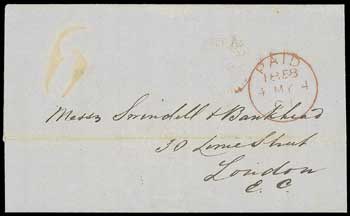 6
PAID
1858
4 MY 4
Messrs Swindell & Bankhead
30 Lime Street
London
E. C.